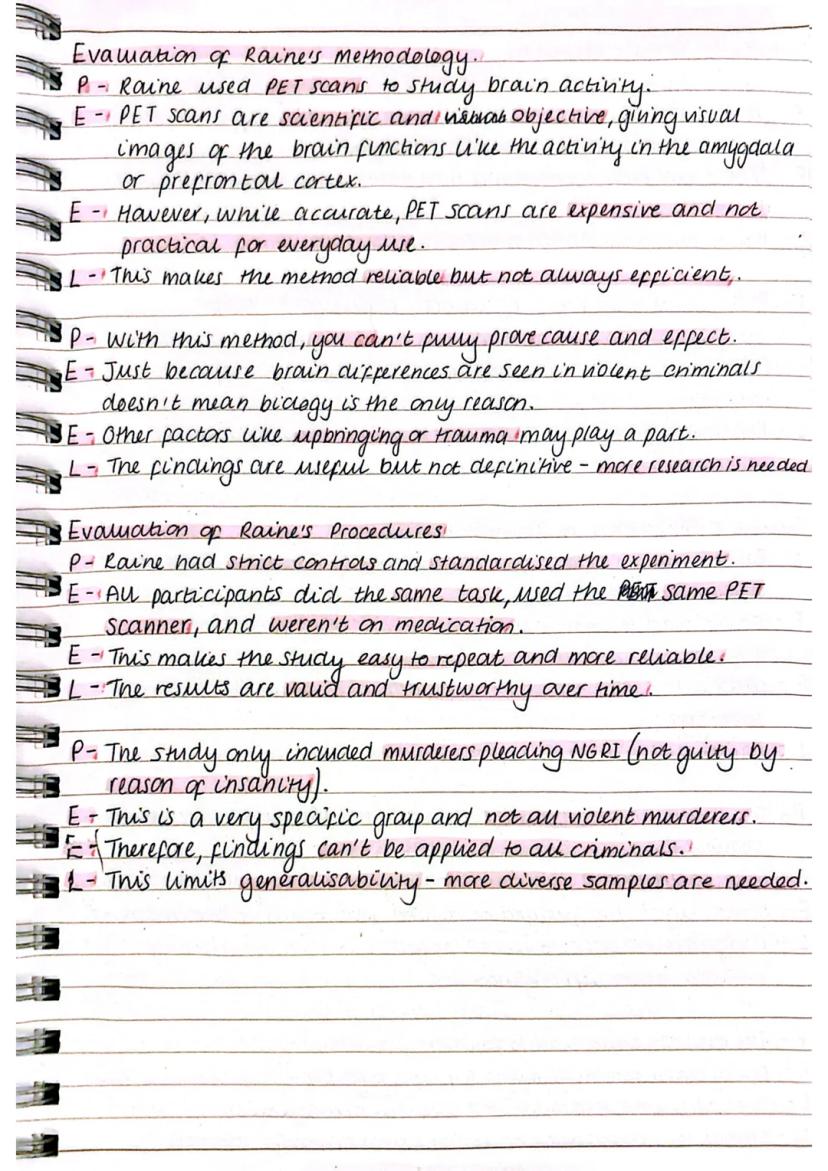 Evaluation of Raine's Methodology.
P - Raine used PET scans to study brain activity.
E - PET scans are scientific and objective, giving visual
images of the brain functions like the activity in the amygdala
or prefrontal cortex.
E - However, while accurate, PET scans are expensive and not
practical for everyday use.
L - This makes the method reliable but not always efficient.
P - With this method, you can't fully prove cause and effect.
E - Just because brain differences are seen in violent criminals
doesn't mean biology is the only reason.
E - Other factors like upbringing or trauma may play a part.
L - The findings are useful but not definitive - more research is needed
Evaluation of Raine's Procedures
P - Raine had strict controls and standardised the experiment.
E - All participants did the same task, used the same PET
scanner, and weren't on medication.
E - This makes the study easy to repeat and more reliable.
L - The results are valid and trustworthy over time.
P - The study only included murderers pleading NGRI (not guilty by
reason of insanity).
E - This is a very specific group and not all violent murderers.
E - Therefore, findings can't be applied to all criminals.
L - This limits generalisability - more diverse samples are needed.